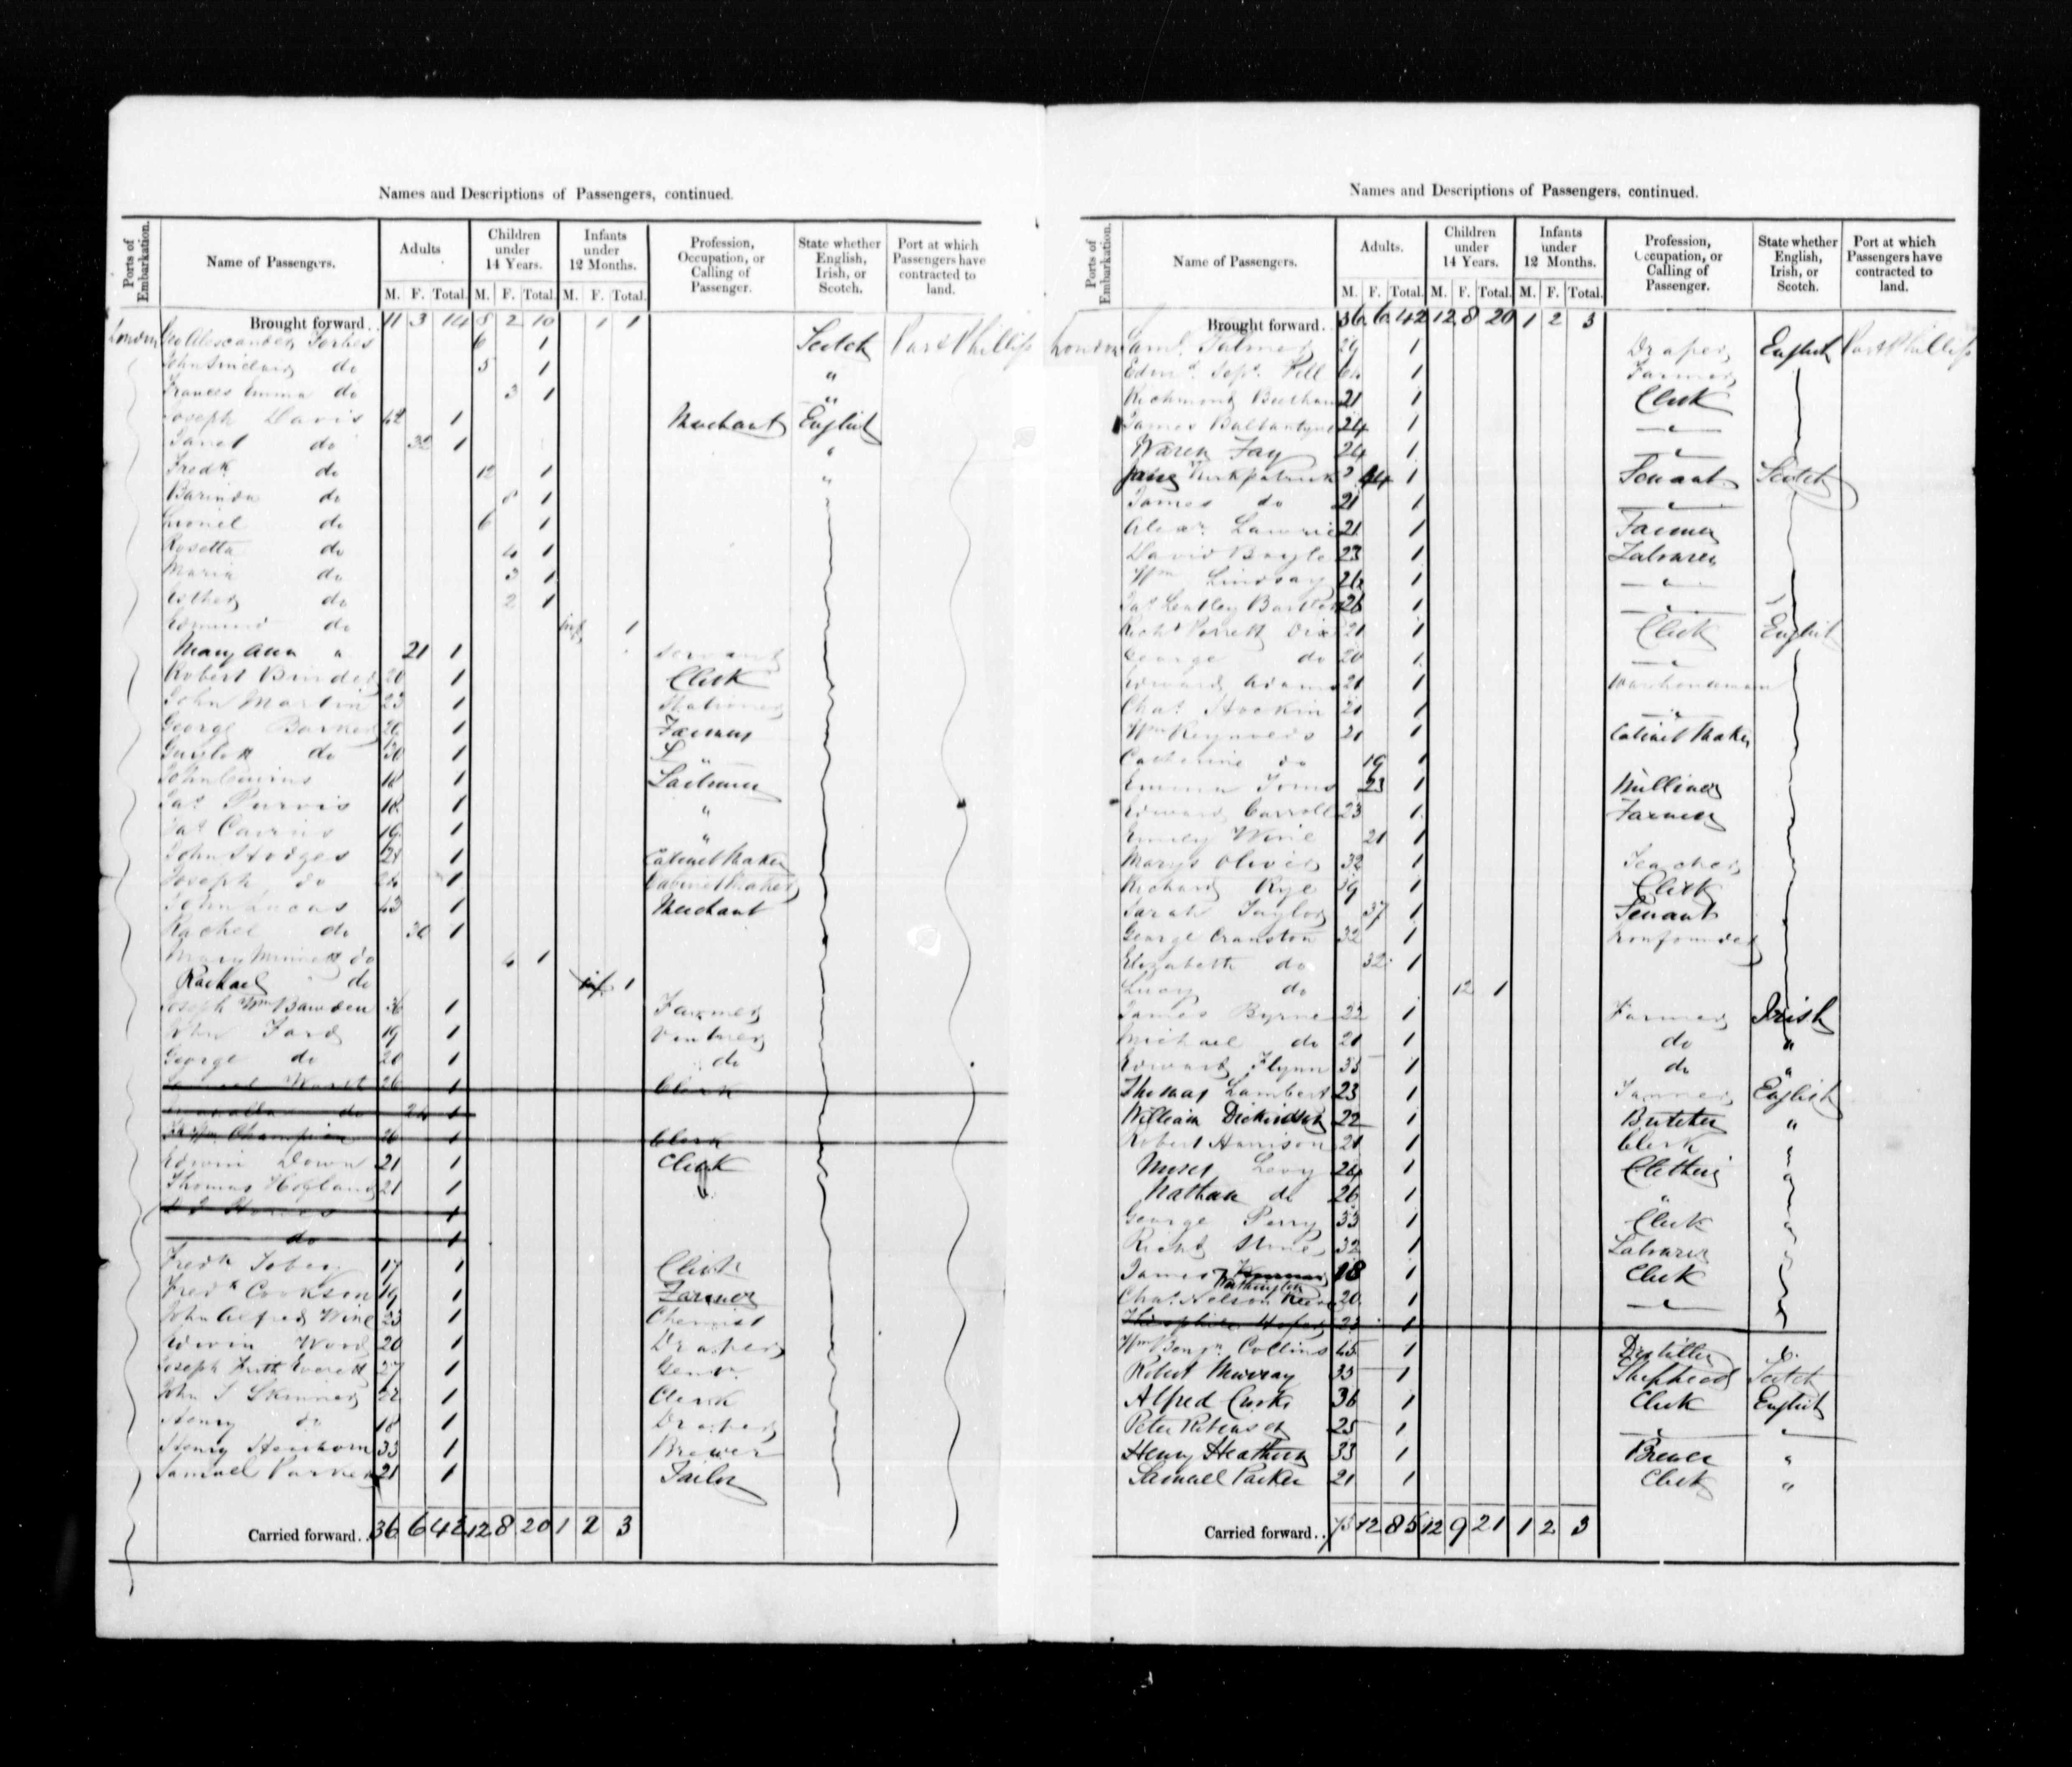 Names and Descriptions of Passengers, continued.
Ports of Embarkation.
Name of Passengers.
Adults
Children under 14 Years.
Infants under 12 Months.
Profession, Occupation, or Calling of Passenger.
State whether English, Irish, or Scotch.
Port at which Passengers have contracted to land.
M. F. Total. M. F. Total. M. F. Total.
Brought forward.. 11 3 14 8 2 10 1 1
London Forbes 6 1 Scotch Port Phillip
John Sinclair do 5 1 "
Frances Emma do 3 1 "
Joseph Davis 42 1 Merchant English
Janet do 32 1 "
Fredk do 12 1 "
do 8 1
Lionel do 6 1
Rosetta do 4 1
Maria do 3 1
Esther do 2 1
Edmund do inf 1
Mary Ann " 21 1 Servant
Robert Binder 20 1 Clerk
John Martin 23 1 Stationer
George Barker 26 1 Farmer
do 30 1 "
John 18 1 Labourer
Jas Purvis 18 1 "
Jas Cairns 19 1 "
John Hodges 21 1 Cabinet Maker
Joseph do 24 1 Cabinet Maker
John Lucas 43 1 Merchant
Rachel do 30 1
Mary do 4 1
Rachael do inf 1
Joseph Wm Bawden 36 1 Farmer
John Ford 19 1 Vintner
George do 20 1 do
Samuel 26 1 Clerk
do 24 1
Wm Champion 26 1 Clerk
Edwin Down 21 1 Clerk
Thomas 21 1
1
do 1
Fredk 17 1 Clerk
Fredk Cookson 19 1 Farmer
John Alfred Wine 23 1 Chemist
Edwin Wood 20 1 Draper
Joseph Frith Everett 27 1 Gentn
John S Skinner 22 1 Clerk
Henry do 18 1 Draper
Henry 33 1 Brewer
Samuel Parker 21 1 Tailor
Carried forward.. 36 6 42 12 8 20 1 2 3
Names and Descriptions of Passengers, continued.
Ports of Embarkation.
Name of Passengers.
Adults.
Children under 14 Years.
Infants under 12 Months.
Profession, Occupation, or Calling of Passenger.
State whether English, Irish, or Scotch.
Port at which Passengers have contracted to land.
M. F. Total. M. F. Total. M. F. Total.
Brought forward. 36 6 42 12 8 20 1 2 3
London Saml Palmer 29 1 Draper English Port Phillip
Edmd Sept 1 Farmer
Richmond 21 1 Clerk
James Ballantyne 24 1 "
Waren Fay 24 1 "
Jane Kirkpatrick 44 1 Servant Scotch
James do 21 1 "
Alexr Lawrie 21 1 Farmer
David Boyle 23 1 Labourer
Wm Lindsay 1 "
Jas Barton 26 1 "
Richd Dix 21 1 Clerk English
George do 20 1 "
Edward Adams 21 1 Warehouseman
Chas Hockin 21 1 "
Wm Reynolds 21 1 Cabinet Maker
Catherine do 19 1
Emma Toms 23 1 Milliner
Edward Carroll 23 1 Farmer
Emily Wine 21 1
Mary Oliver 32 1 Teacher
Richard Rye 39 1 Clerk
Sarah Taylor 37 1 Servant
George Cranston 32 1 Ironfounder
Elizabeth do 32 1
Lucy do 12 1
James Byrne 22 1 Farmer Irish
Michael do 21 1 do "
Edward Flynn 35 1 do "
Thomas Lambert 23 1 Tanner English
William Dickinson 22 1 Butcher "
Robert Harrison 21 1 Clerk "
Moses Levy 24 1 Clothier "
Nathan do 26 1 "
George Perry 33 1 Clerk "
Richd 32 1 Labourer
James 18 1 Clerk
Worthington
Chas Nelson 20 1 "
Theophilus 23 1
Wm Benjn Collins 45 1 Distiller do
Robert Murray 35 1 Shepherd Scotch
Alfred 36 1 Clerk English
Peter Robinson 25 1 "
Henry 33 1 Brewer "
Samuel Parker 21 1 Clerk "
Carried forward.. 73 12 85 12 9 21 1 2 3